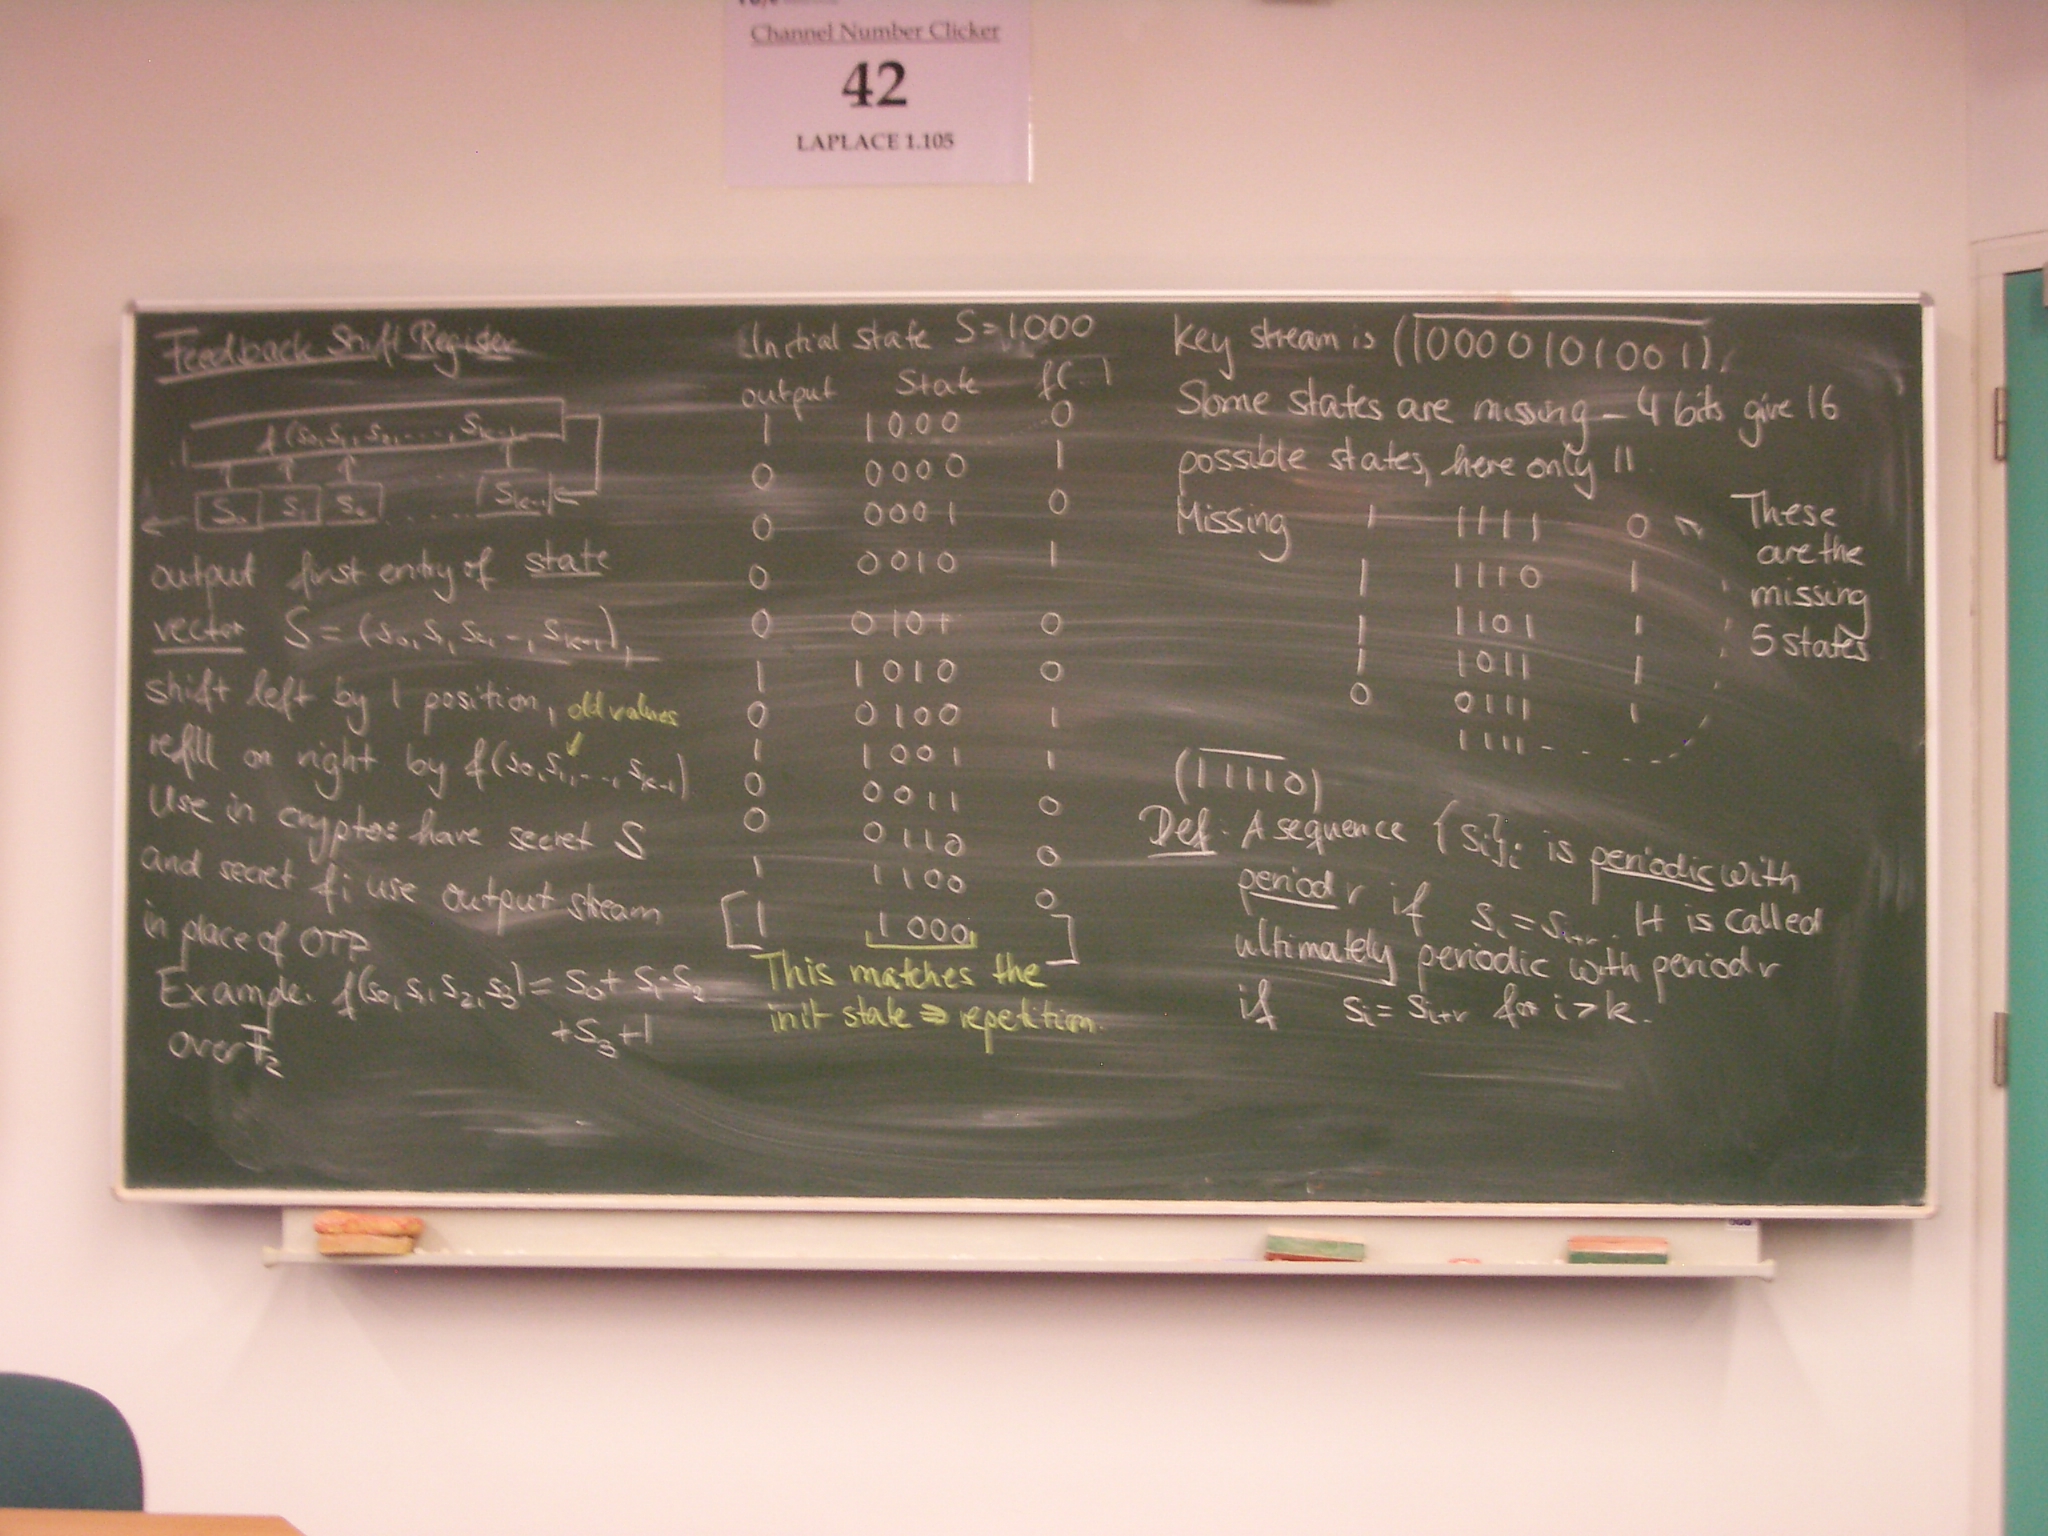 Channel Number Clicker
42
LAPLACE 1.105
Feedback Shift Register
f(s₀, s₁, s₂, ...., sₖ₋₁
S₀ S₁ S₂ ...... Sₖ₋₁
output first entry of state
vector S = (s₀, s₁, s₂, .., sₖ₋₁),
shift left by 1 position, old values
refill on right by f(s₀, s₁, ..., sₖ₋₁)
Use in crypto: have secret S
and secret f; use output stream
in place of OTP
Example: f(s₀, s₁ s₂, s₃) = s₀ + s₁·s₂
+ s₃ + 1
over F₂
Initial state S = 1000
output State f(...)
1 1000 0
0 0000 1
0 0001 0
0 0010 1
0 0101 0
1 1010 0
0 0100 1
1 1001 1
0 0011 0
0 0110 0
1 1100 0
[1 1000 ]
This matches the
init state ⇒ repetition.
Key stream is (10000101001),
Some states are missing – 4 bits give 16
possible states, here only 11
Missing 1 1111 0
1 1110 1
1 1101 1
1 1011 1
0 0111 1
1111
These
are the
missing
5 states
(11110)
Def. A sequence {sᵢ}ᵢ is periodic with
period r if sᵢ = sᵢ₊ᵣ. It is called
ultimately periodic with period r
if sᵢ = sᵢ₊ᵣ for i > k.